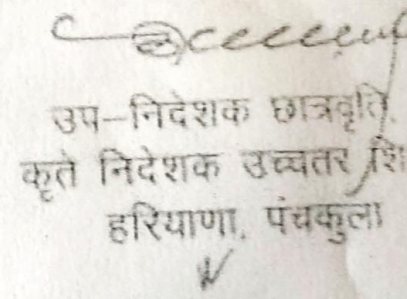 उप–निदेशक छात्रवृति,
कृते निदेशक उच्चतर शि
हरियाणा, पंचकुला